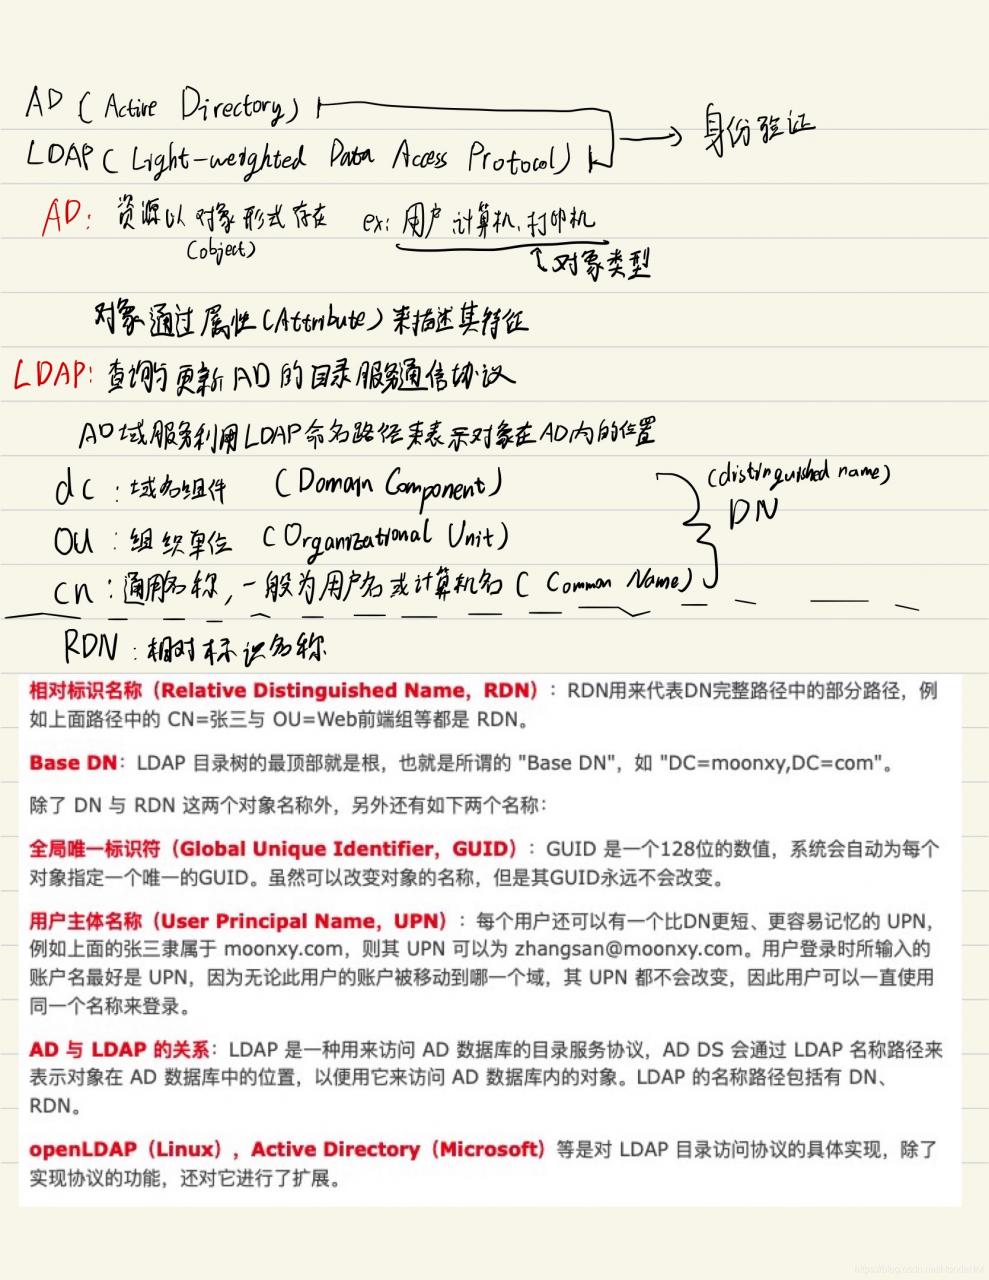 AD (Active Directory)
LDAP (Light-weighted Data Access Protocol)
身份验证
AD: 资源以对象形式存在 ex: 用户 计算机、打印机
(object)
对象类型
对象通过属性(Attribute)来描述其特征
LDAP: 查询与更新AD的目录服务通信协议
AD域服务利用LDAP命名路径来表示对象在AD内的位置
dc : 域名组件 (Domain Component)
(distinguished name)
DN
OU : 组织单位 (Organizational Unit)
cn : 通用名称, 一般为用户名或计算机名 (Common Name)
RDN : 相对标识名称
相对标识名称（Relative Distinguished Name，RDN）：RDN用来代表DN完整路径中的部分路径，例
如上面路径中的 CN=张三与 OU=Web前端组等都是 RDN。
Base DN：LDAP 目录树的最顶部就是根，也就是所谓的 "Base DN"，如 "DC=moonxy,DC=com"。
除了 DN 与 RDN 这两个对象名称外，另外还有如下两个名称：
全局唯一标识符（Global Unique Identifier，GUID）：GUID 是一个128位的数值，系统会自动为每个
对象指定一个唯一的GUID。虽然可以改变对象的名称，但是其GUID永远不会改变。
用户主体名称（User Principal Name，UPN）：每个用户还可以有一个比DN更短、更容易记忆的 UPN，
例如上面的张三隶属于 moonxy.com，则其 UPN 可以为 zhangsan@moonxy.com。用户登录时所输入的
账户名最好是 UPN，因为无论此用户的账户被移动到哪一个域，其 UPN 都不会改变，因此用户可以一直使用
同一个名称来登录。
AD 与 LDAP 的关系：LDAP 是一种用来访问 AD 数据库的目录服务协议，AD DS 会通过 LDAP 名称路径来
表示对象在 AD 数据库中的位置，以便用它来访问 AD 数据库内的对象。LDAP 的名称路径包括有 DN、
RDN。
openLDAP（Linux），Active Directory（Microsoft）等是对 LDAP 目录访问协议的具体实现，除了
实现协议的功能，还对它进行了扩展。